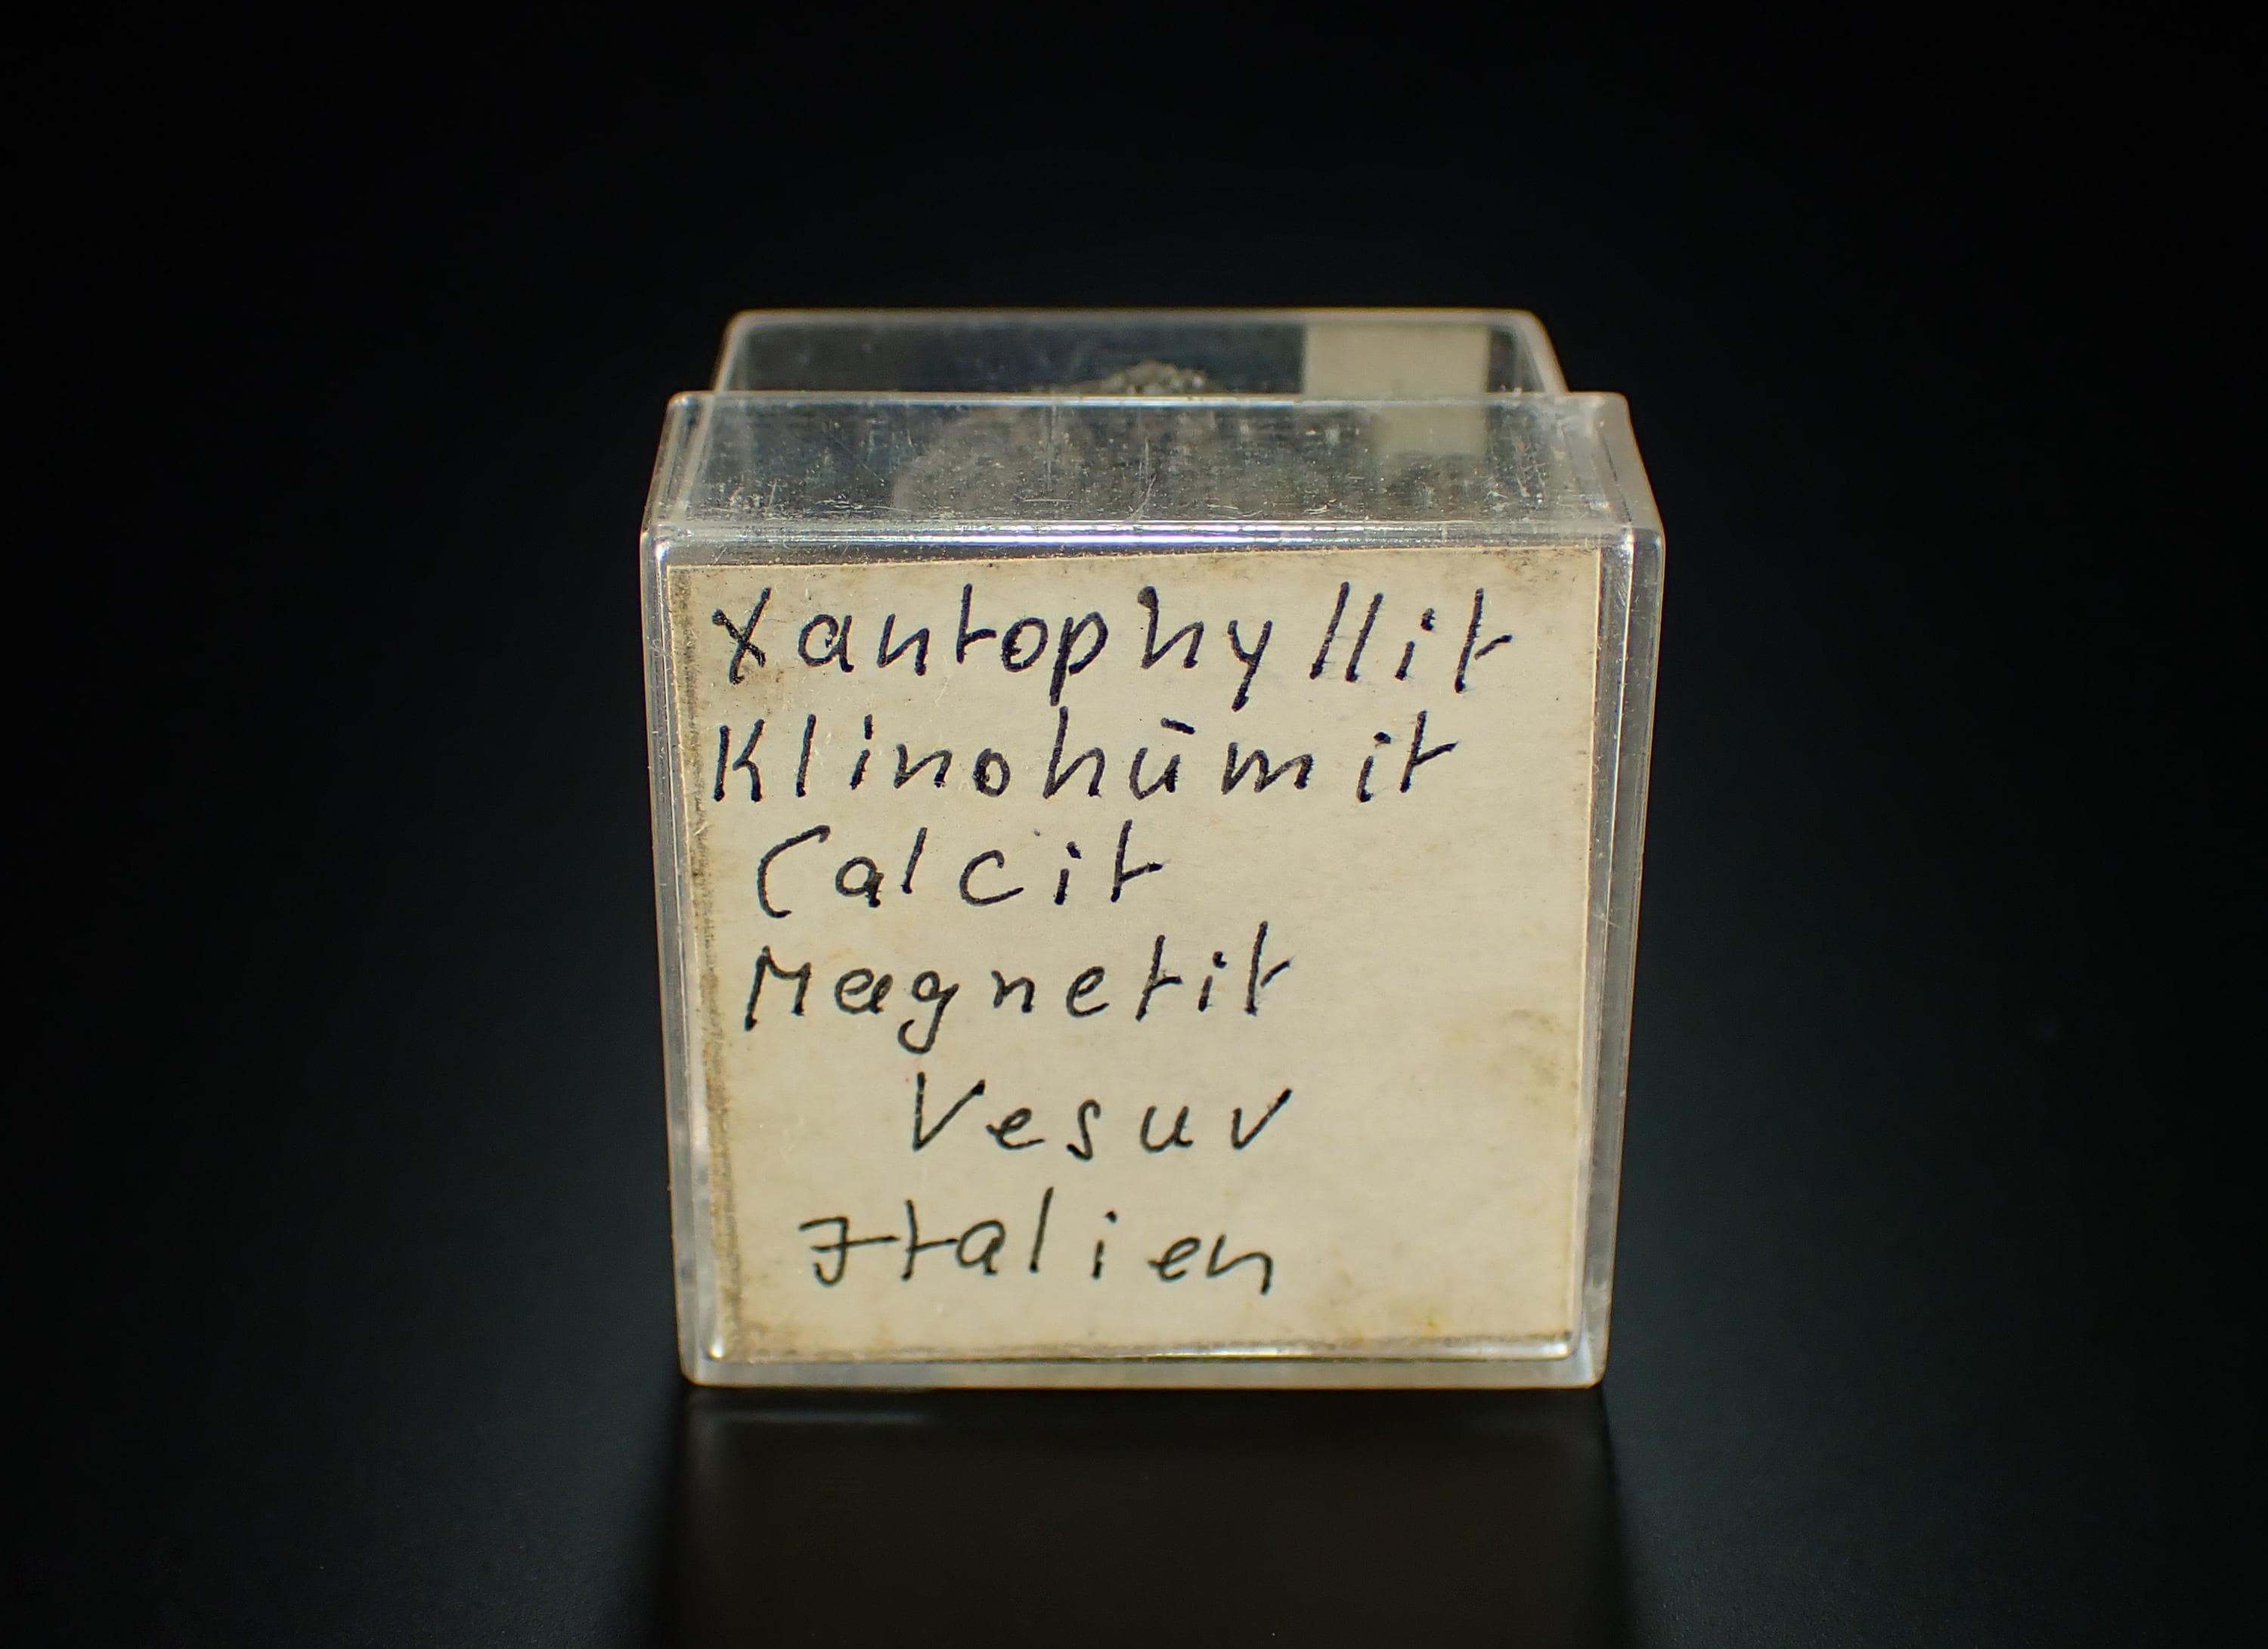 Xantophyllit
Klinohūmit
Calcit
Magnetit
Vesuv
Italien